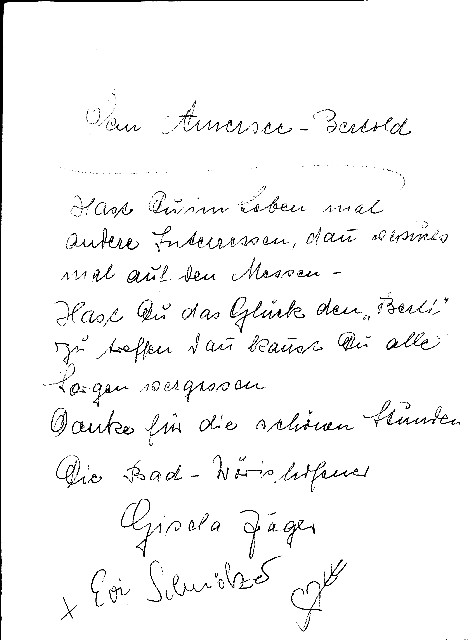 Dem Amersee-Bertold
Hast Du im Leben mal
andere Interessen, dan
mal auf den Messen -
Hast Du das Glück den „Berti“
zu treffen dan kanst Du alle
Sorgen vergessen
Danke für die schönen Stunden
Die Bad-Wörishofener
Gisela Jäger
x Evi